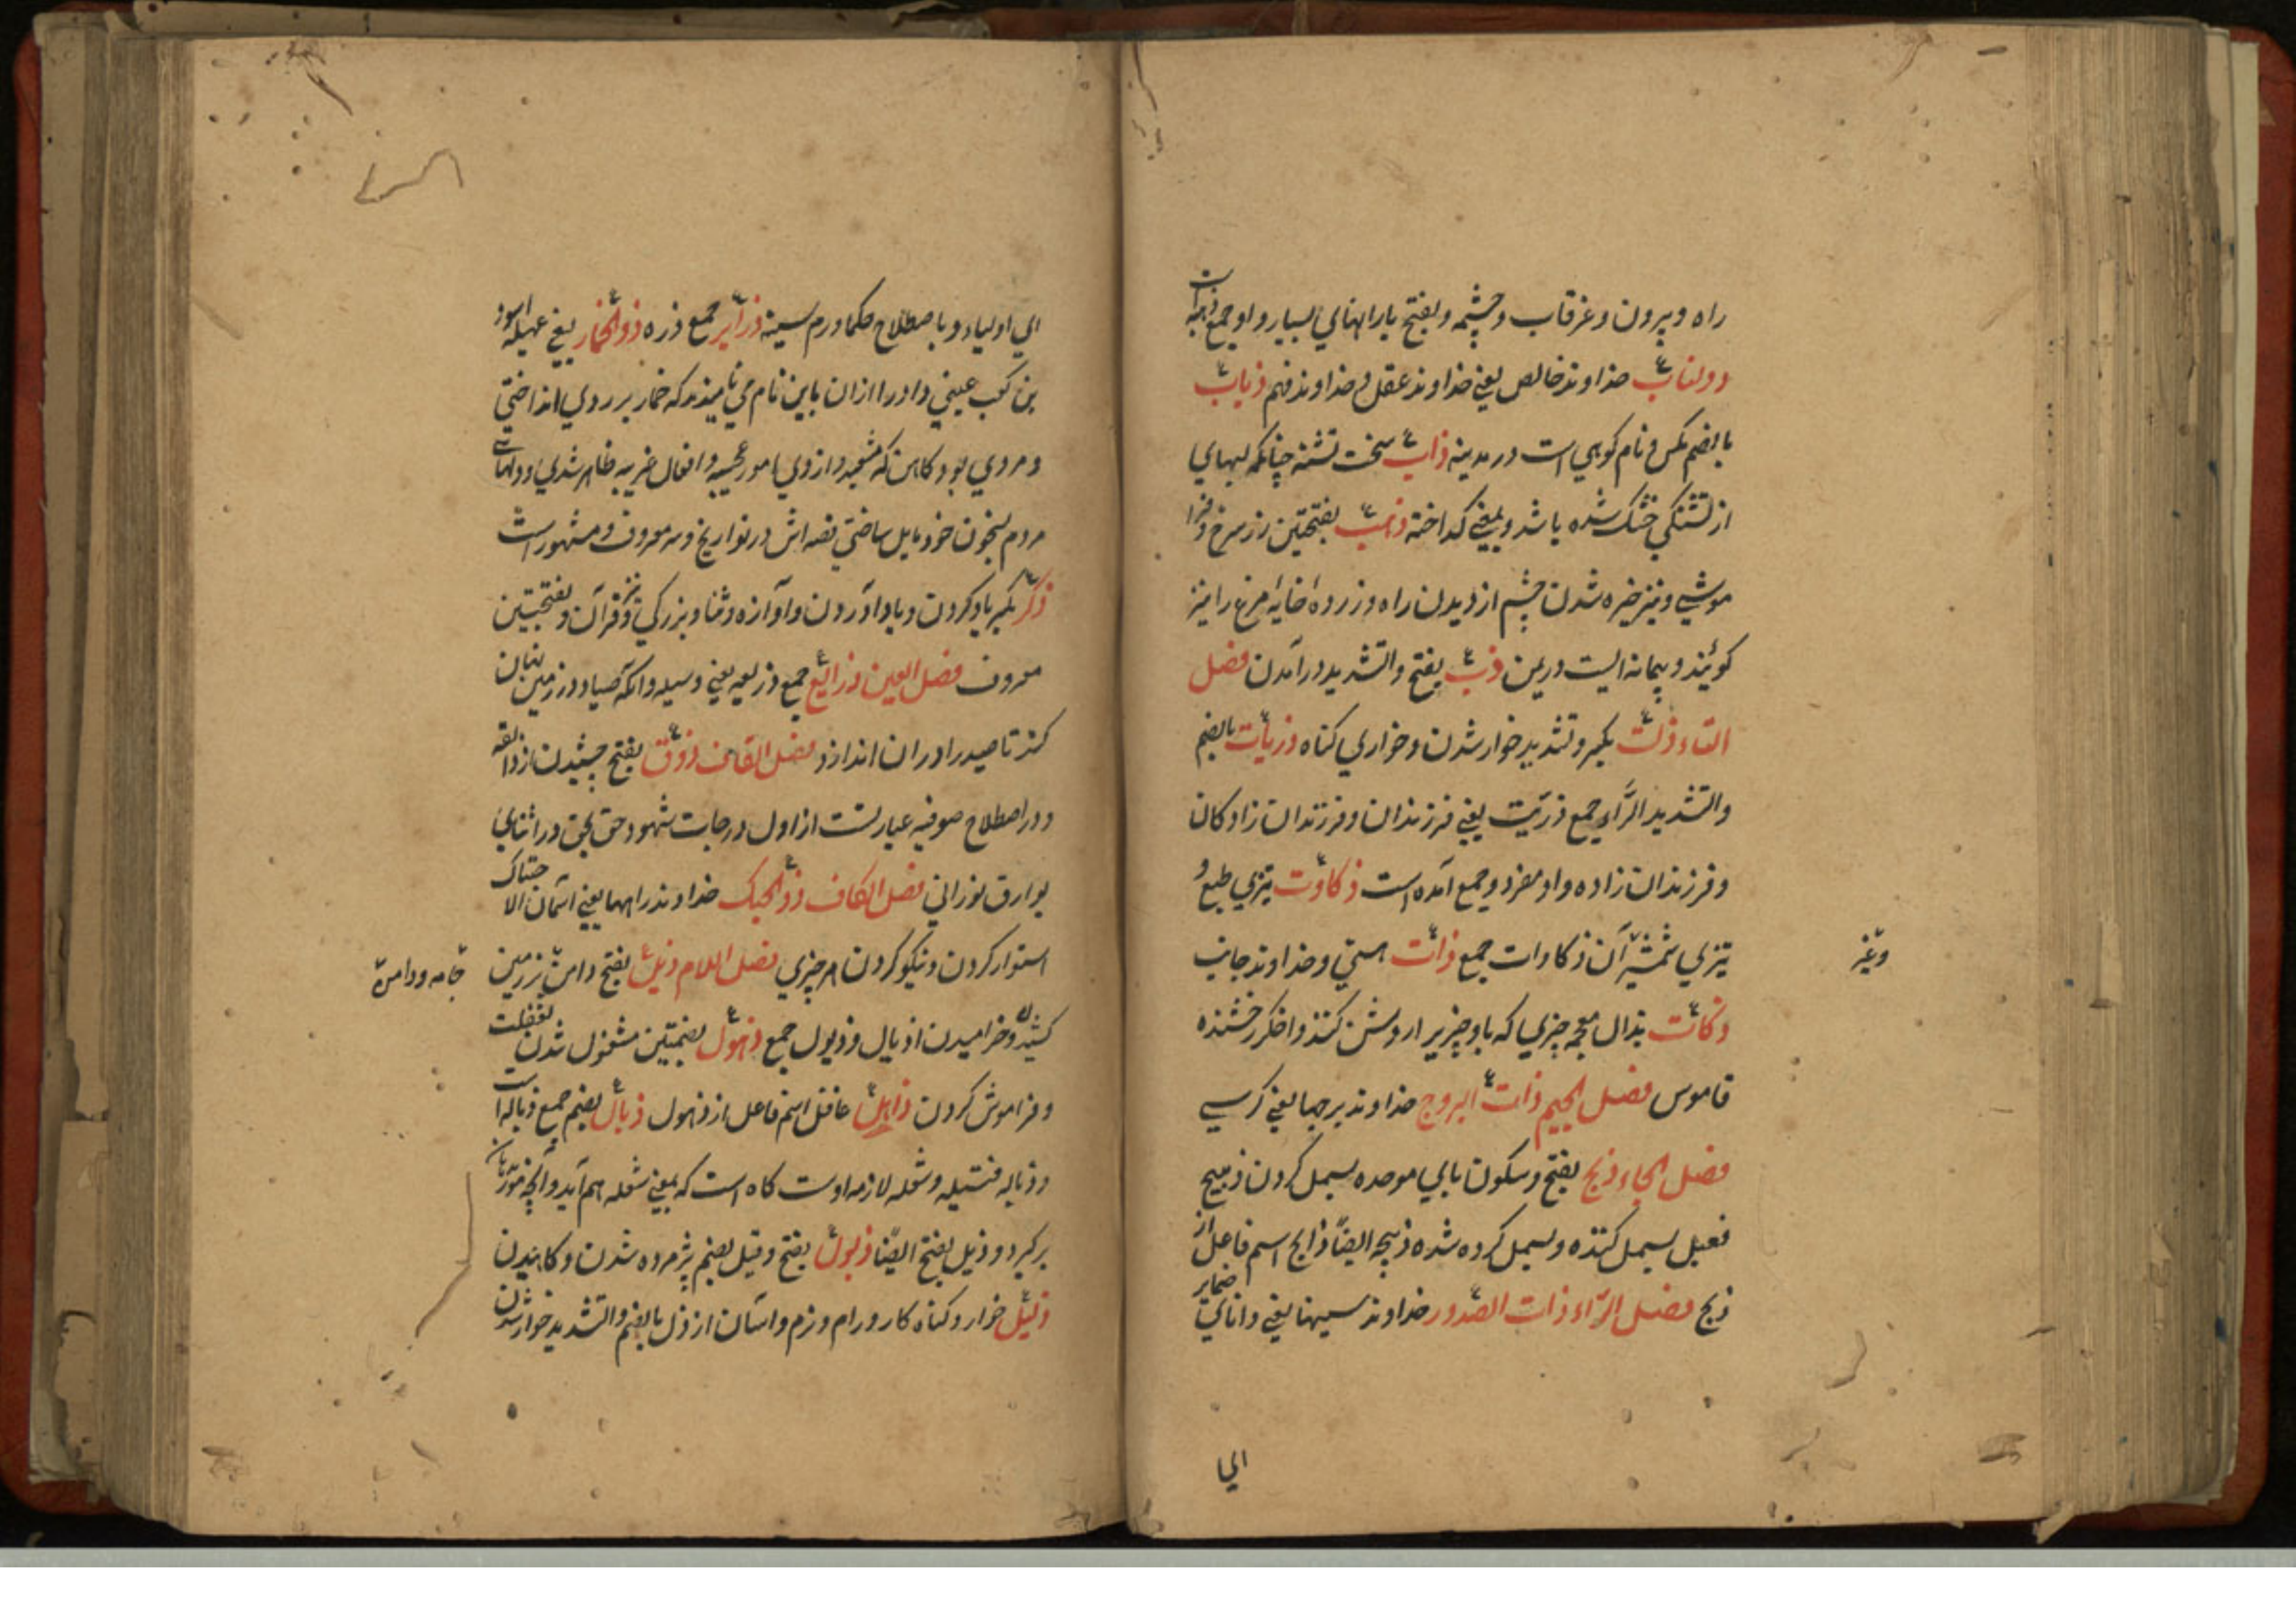 راه و بیرون و غرقاب و چشمه و بفتح بارانهای بسیار و او جمع ذهبه است
ذولناب خداوند خالص یعنی خداوند عقل و خداوند فهم ذباب
بالضم مکس و نام کوهی است در مدینه ذاب سخت تشنه چنانکه لبهای
از تشنگی خشک شده باشد و بمعنی کداخته ذهب بفتحتین زر سرخ و
موشی و نیز خیره شدن چشم از دیدن راه و زرده خایه مرغ را نیز
کویند و پیمانه ایست در یمن ذب بفتح والتشدید در آمدن فصل
التاء ذلت بکسر و تشدید خوار شدن و خواری کناه ذریات بالضم
والتشدید الراء جمع ذریت یعنی فرزندان و فرزندان زادکان
و فرزندان زاده و او مفرد و جمع آمده است ذکاوت تیزی طبع و
تیزی شمشیر آن ذکاوات جمع ذات هستی و خداوند جانب
وغیر
ذکات بذال معجمه چیزی که باو چیزیرا روشن کنند و اخکر رخشنده
قاموس فصل الجیم ذات البروج خداوند برجها یعنی کرسی
فصل الحاء ذبح بفتح و سکون بای موحده بسمل کردن ذبیح
فعیل بسمل کننده و بسمل کرده شده ذبیحه ایضًا ذابح اسم فاعل از
ذبح فصل الراء ذات الصدور خداوند سینها یعنی دانای ضمایر
الی
ای اولیاء و باصطلاح حکما ورم سینه ذرایر جمع ذره ذوالخمار یعنی عهیله اسود
بن کعب عینی و او را ازان باین نام می نامیدند که خمار بر روی انداختی
و مردی بود کاهن که مشعبد و از وی امور عجیبه و افعال غریبه ظاهر شدی و دلهای
مردم بخون خود مایل ساختی قصه اش در تواریخ و سه معروف و مشهور است
ذکر بکسر یاد کردن و یاد آوردن و آوازه و ثنا و بزرکی و قرآن و بفتحتین
معروف فصل العین ذرایع جمع ذریعه یعنی وسیله و آنکه صیاد در زمین پنهان
کند تا صید را دران اندازد فصل القاف ذوق بفتح چشیدن از ذائقه
و در اصطلاح صوفیه عبارتست از اول درجات شهود حق بحق در اثنای
بوارق نورانی فصل الکاف ذوالحبک خداوند راهها یعنی آسمان الا حتباک
استوار کردن و نیکو کردن هر چیزی فصل اللام ذیل بفتح دامن بر زمین
جامه و دامن
کشیدن و خرامیدن اذیال و ذیول جمع ذهول بضمتین مشغول شدن بغفلت
و فراموش کردن ذاهل غافل اسم فاعل از ذهول ذبال بضم جمع ذباله است
و ذباله فتیله و شعله لازمه اوست کاه است که بمعنی شعله هم آید و آنچه
برکیرد و ذیل بفتح ایضًا ذبول بفتح و قیل بضم پژمرده شدن و کاهیدن
ذلیل خوار و کناه کار و رام و نرم و آسان از ذل بالضم والتشدید خوار شدن